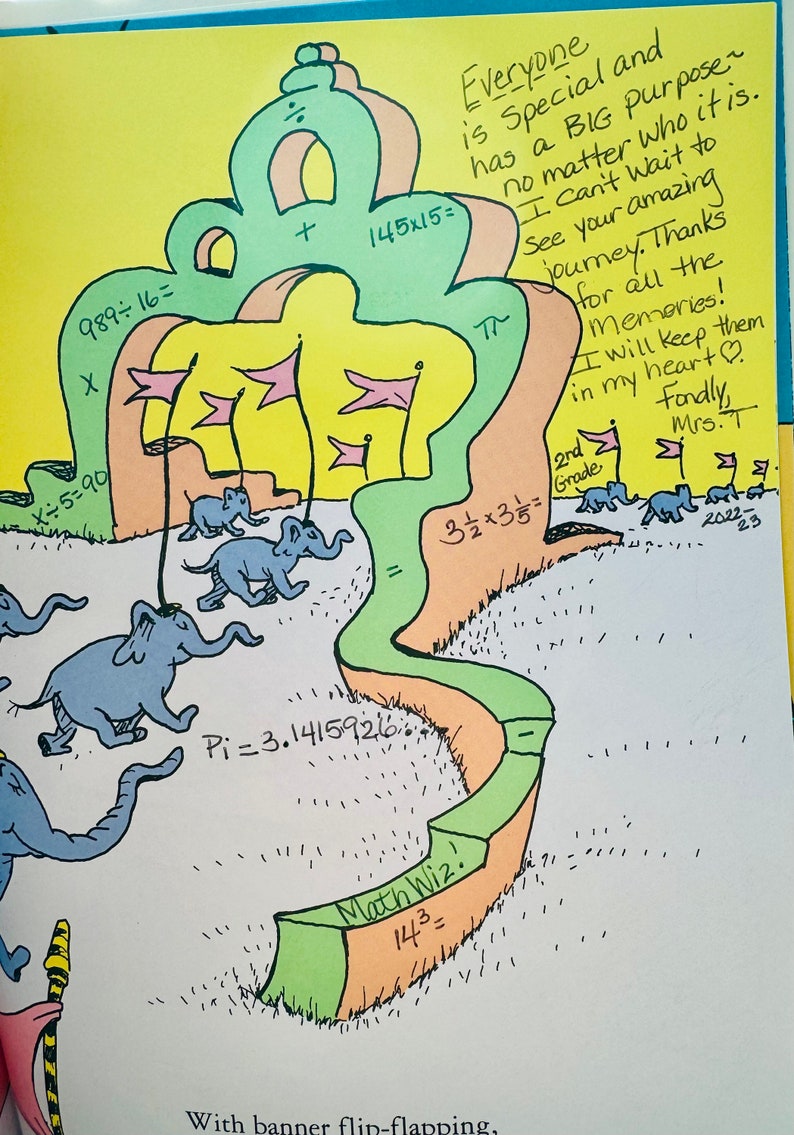 Everyone
is Special and
has a BIG purpose~
no matter who it is.
I can't wait to
see your amazing
journey. Thanks
for all the
memories!
I will keep them
in my heart ♡.
Fondly,
Mrs. T
÷
+
145x15=
989÷16=
π
x
x÷5=90
2nd
Grade
2022-
23
3 1/2 x 3 1/5 =
=
Pi = 3.1415926...
-
Math Wiz!
14³=
With banner flip-flapping,